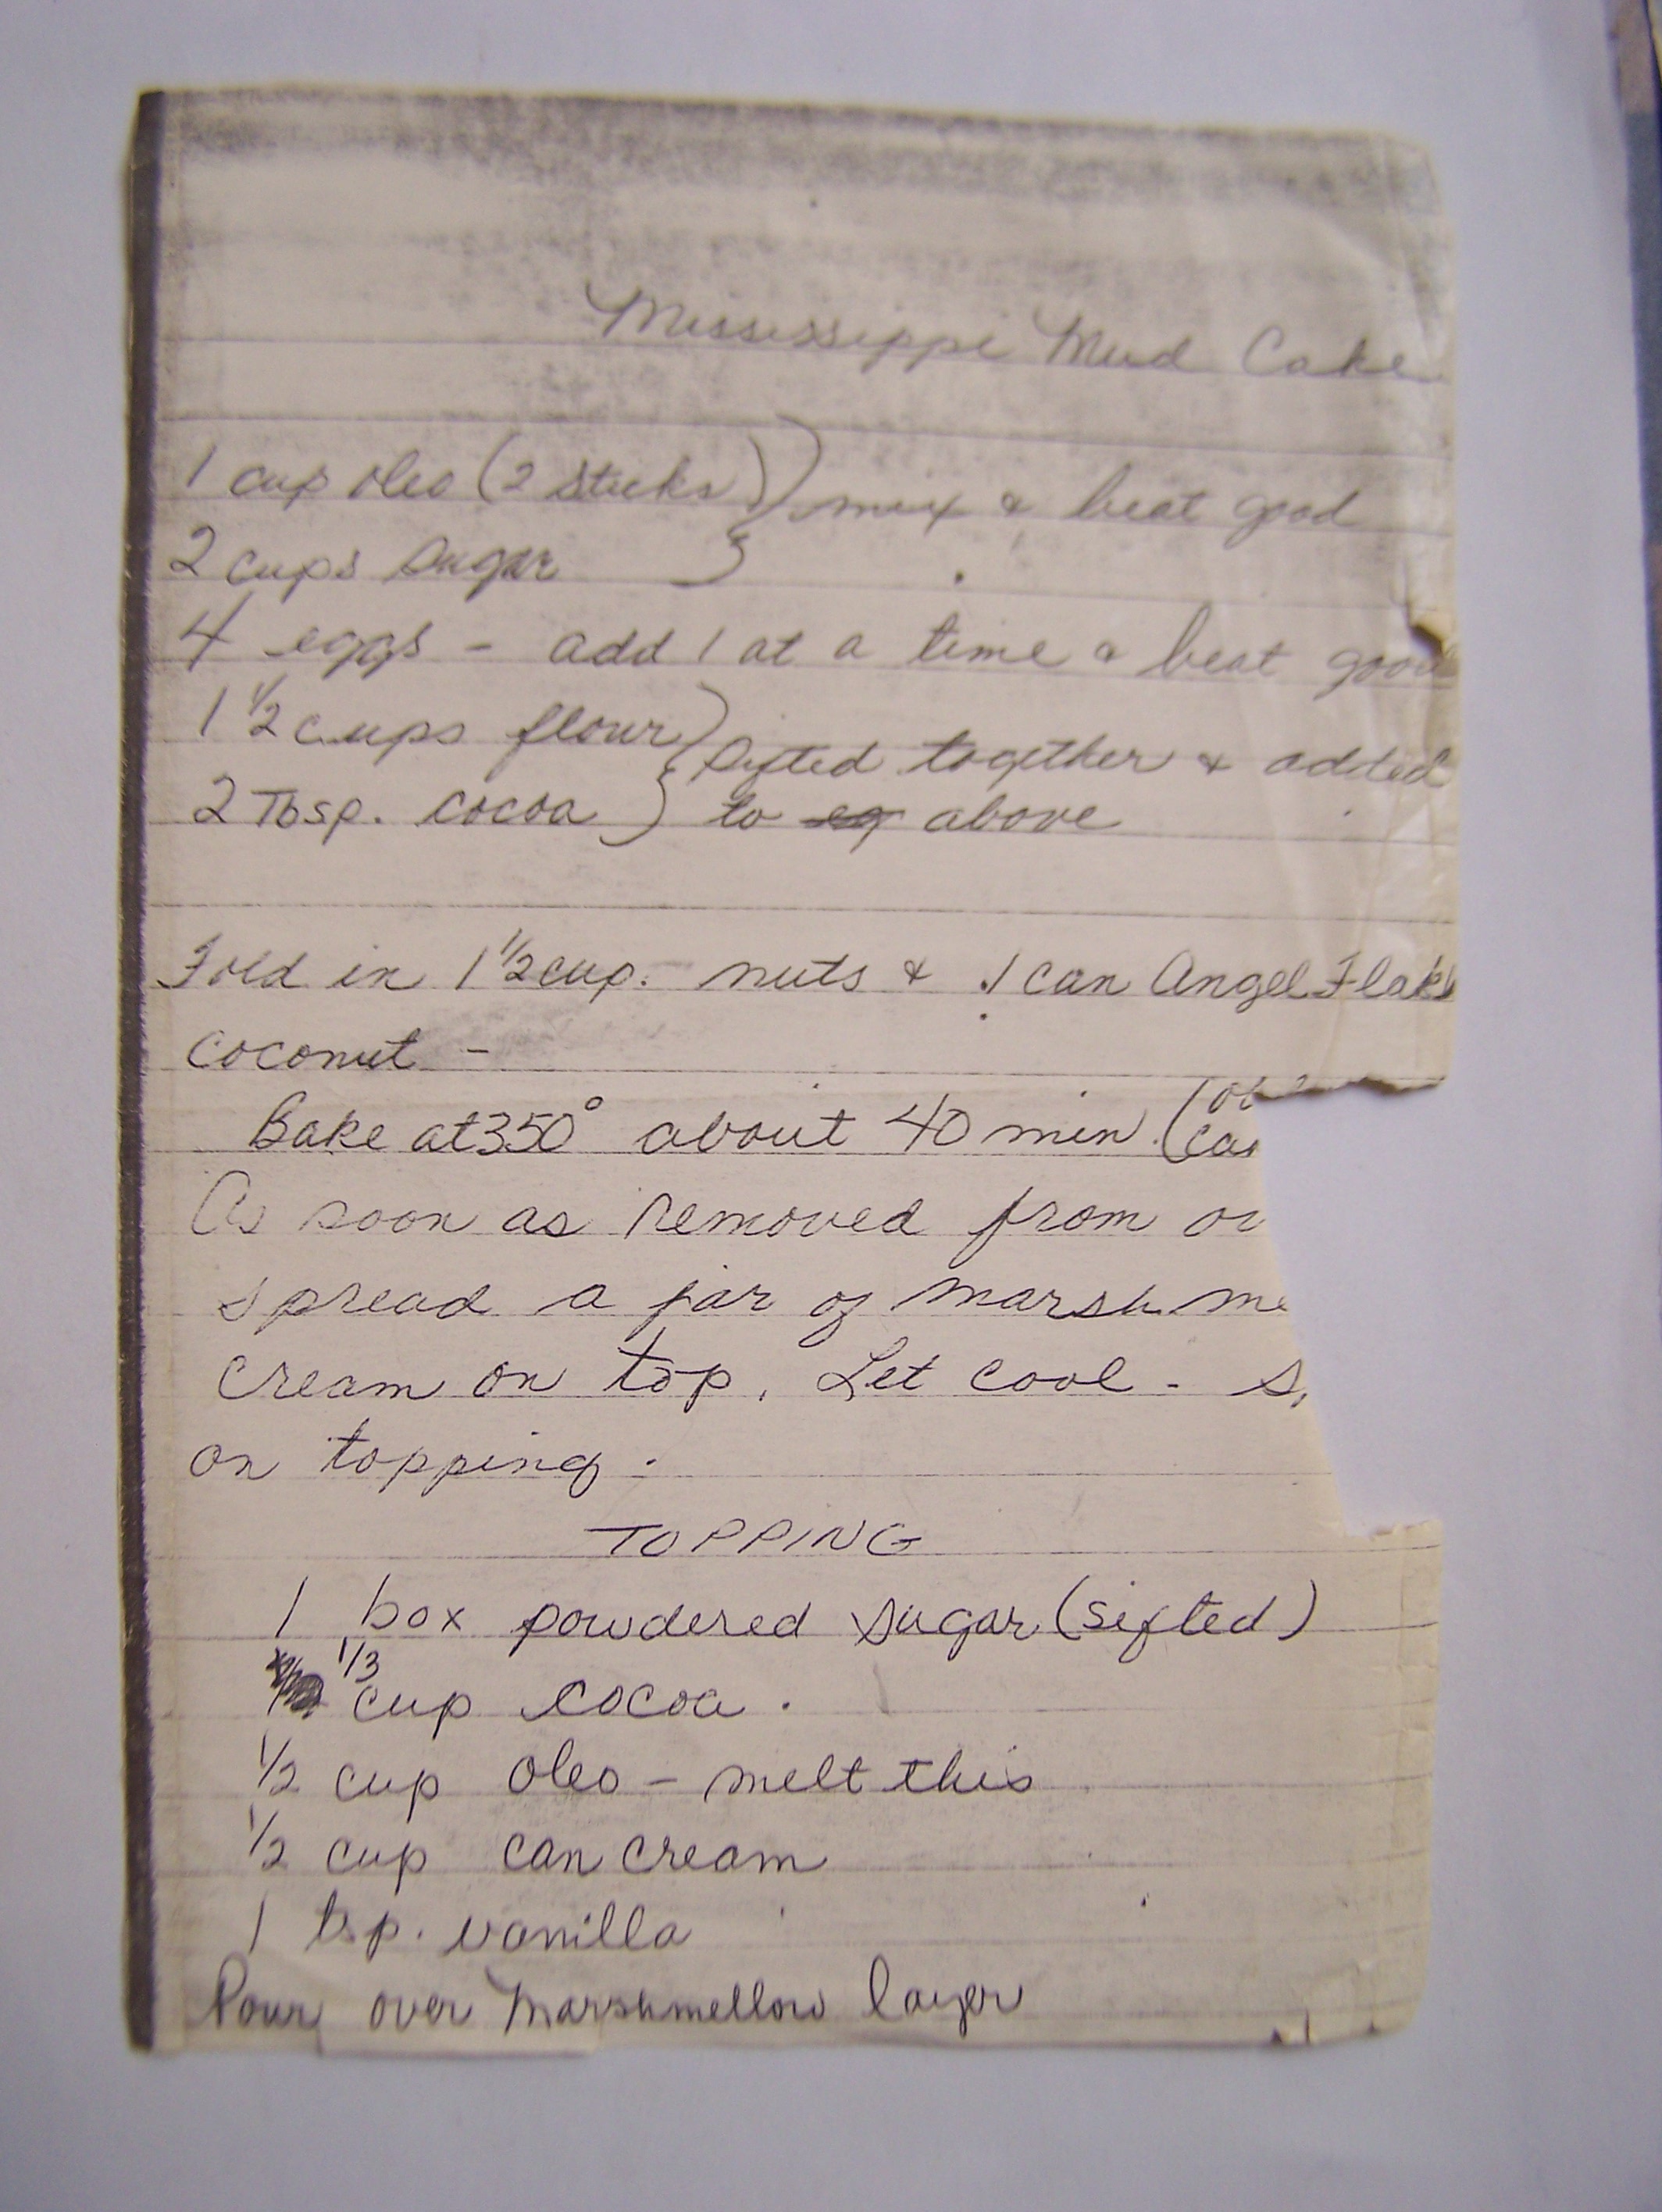 Mississippi Mud Cake
1 cup oleo (2 sticks) ) mix & beat good
2 cups sugar
4 eggs - add 1 at a time & beat good
1 1/2 cups flour ) sifted together & added
2 Tbsp. cocoa } to above
Fold in 1 1/2 cup. nuts & 1 can Angel Flake
coconut -
Bake at 350° about 40 min. (
As soon as removed from
spread a jar of marsh
cream on top. Let cool -
on topping.
TOPPING
1 box powdered sugar (sifted)
1/3 cup cocoa.
1/2 cup oleo - melt this
1/2 cup can cream
1 tsp. vanilla
Pour over marshmellow layer